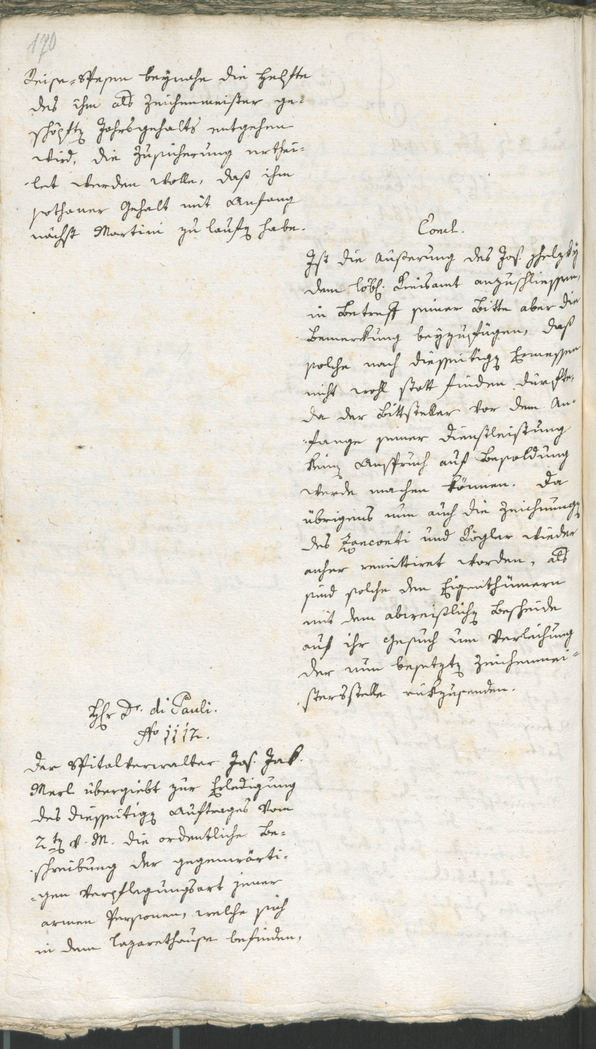 170
Reise-Spesen beynahe die Helfte
des ihm als Zeichenmeister ge-
schöpften Jahrsgehalts entgehen
wird, die Zusicherung erthei-
let werden wolle, daß ihm
sothaner Gehalt mit Anfang
nächst Martini zu lauffen habe.
Concl.
Ist die Äußerung des Jos.
dem löbl. Kreisamt anzuschliessen,
in Betreff seiner Bitte aber die
Bemerkung beyzufügen, daß
solche nach diesseitigen Ermessen
nicht wohl statt finden dürfte,
da der Bittsteller vor dem An-
fange seiner Dienstleistung
keinen Anspruch auf Besoldung
werde machen können. Da
übrigens nun auch die Zeichnungen
des und Kögler wieder
anher remittiret worden, als
sind solche den Eigenthümern
mit dem abweislichen Bescheide
auf ihr Gesuch um Verleihung
der nun besetzten Zeichenmei-
stersstelle rükzusenden.
Hr Dr. di Pauli.
No 1112.
Der Spitalverwalter Jos. Jak.
Merl übergiebt zur Erledigung
des diesseitigen Auftrages vom
2ten v. M. die ordentliche Be-
schreibung der gegenwärti-
gen Verpflegungsart jener
armen Personen, welche sich
in dem Lazarethause befinden,